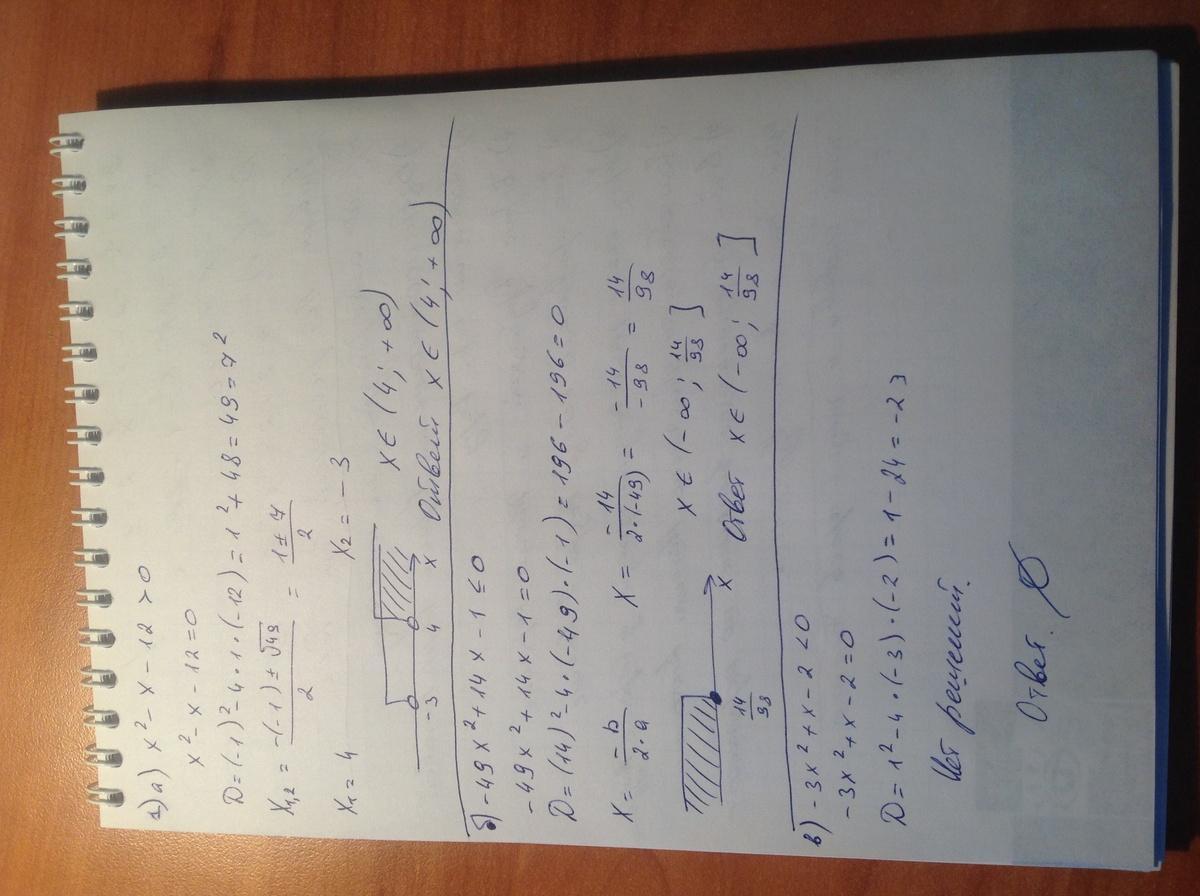 1) а) x² - x - 12 > 0
x² - x - 12 = 0
D = (-1)² - 4·1·(-12) = 1² + 48 = 49 = 7²
x₁,₂ = -(-1) ± √49 / 2 = 1 ± 7 / 2
x₁ = 4 x₂ = -3
-3 4 x x ∈ (4; +∞)
Ответ x ∈ (4; +∞)
б) -49x² + 14x - 1 ≤ 0
-49x² + 14x - 1 = 0
D = (14)² - 4·(-49)·(-1) = 196 - 196 = 0
x = -b / 2·a x = -14 / 2·(-49) = -14 / -98 = 14/98
14/98 x x ∈ (-∞; 14/98]
Ответ x ∈ (-∞; 14/98]
в) -3x² + x - 2 < 0
-3x² + x - 2 = 0
D = 1² - 4·(-3)·(-2) = 1 - 24 = -23
Нет решений.
Ответ. ∅